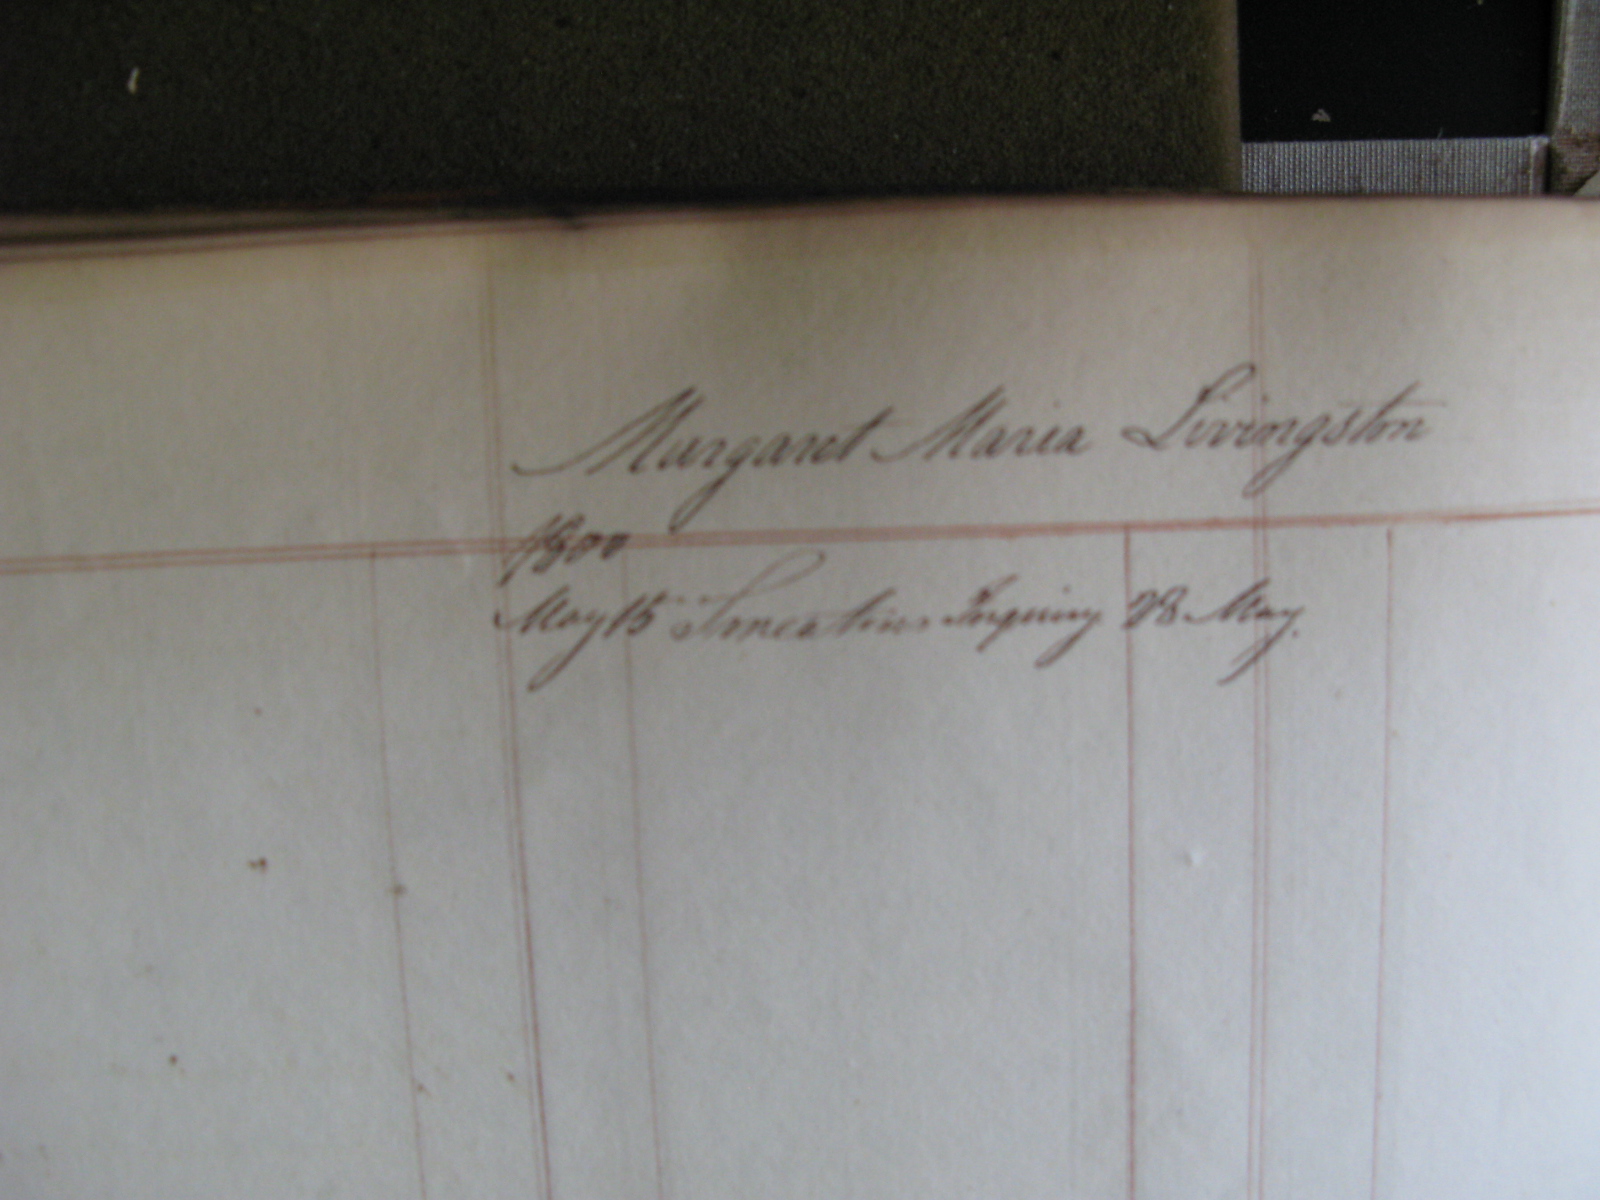 Margaret Maria Livingston
1800
May 15 Smeatons Inquiry 28 May.